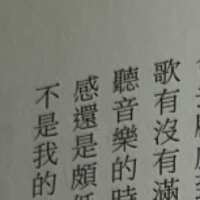 歌有沒有滿
聽音樂的時
感還是頗低
不是我的